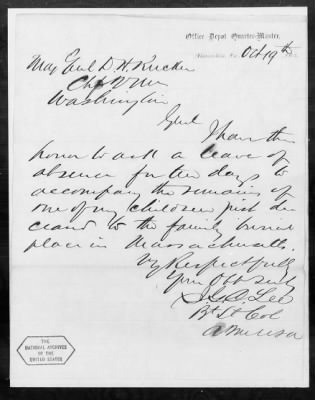 Office Depot Quarter-Master,
Oct 19th
Maj Genl D. H. Rucker
Chf Q M
Washington
Genl
I have the
honor to ask a leave of
absence for five days to
accompany the remains of
one of my children just de
ceased to the family burial
place in Massachusetts.
Vy Respectfully
Your Obt Svt
J. G. C. Lee
Bt Lt Col
A Q M USA
THE
NATIONAL ARCHIVES
OF THE
UNITED STATES